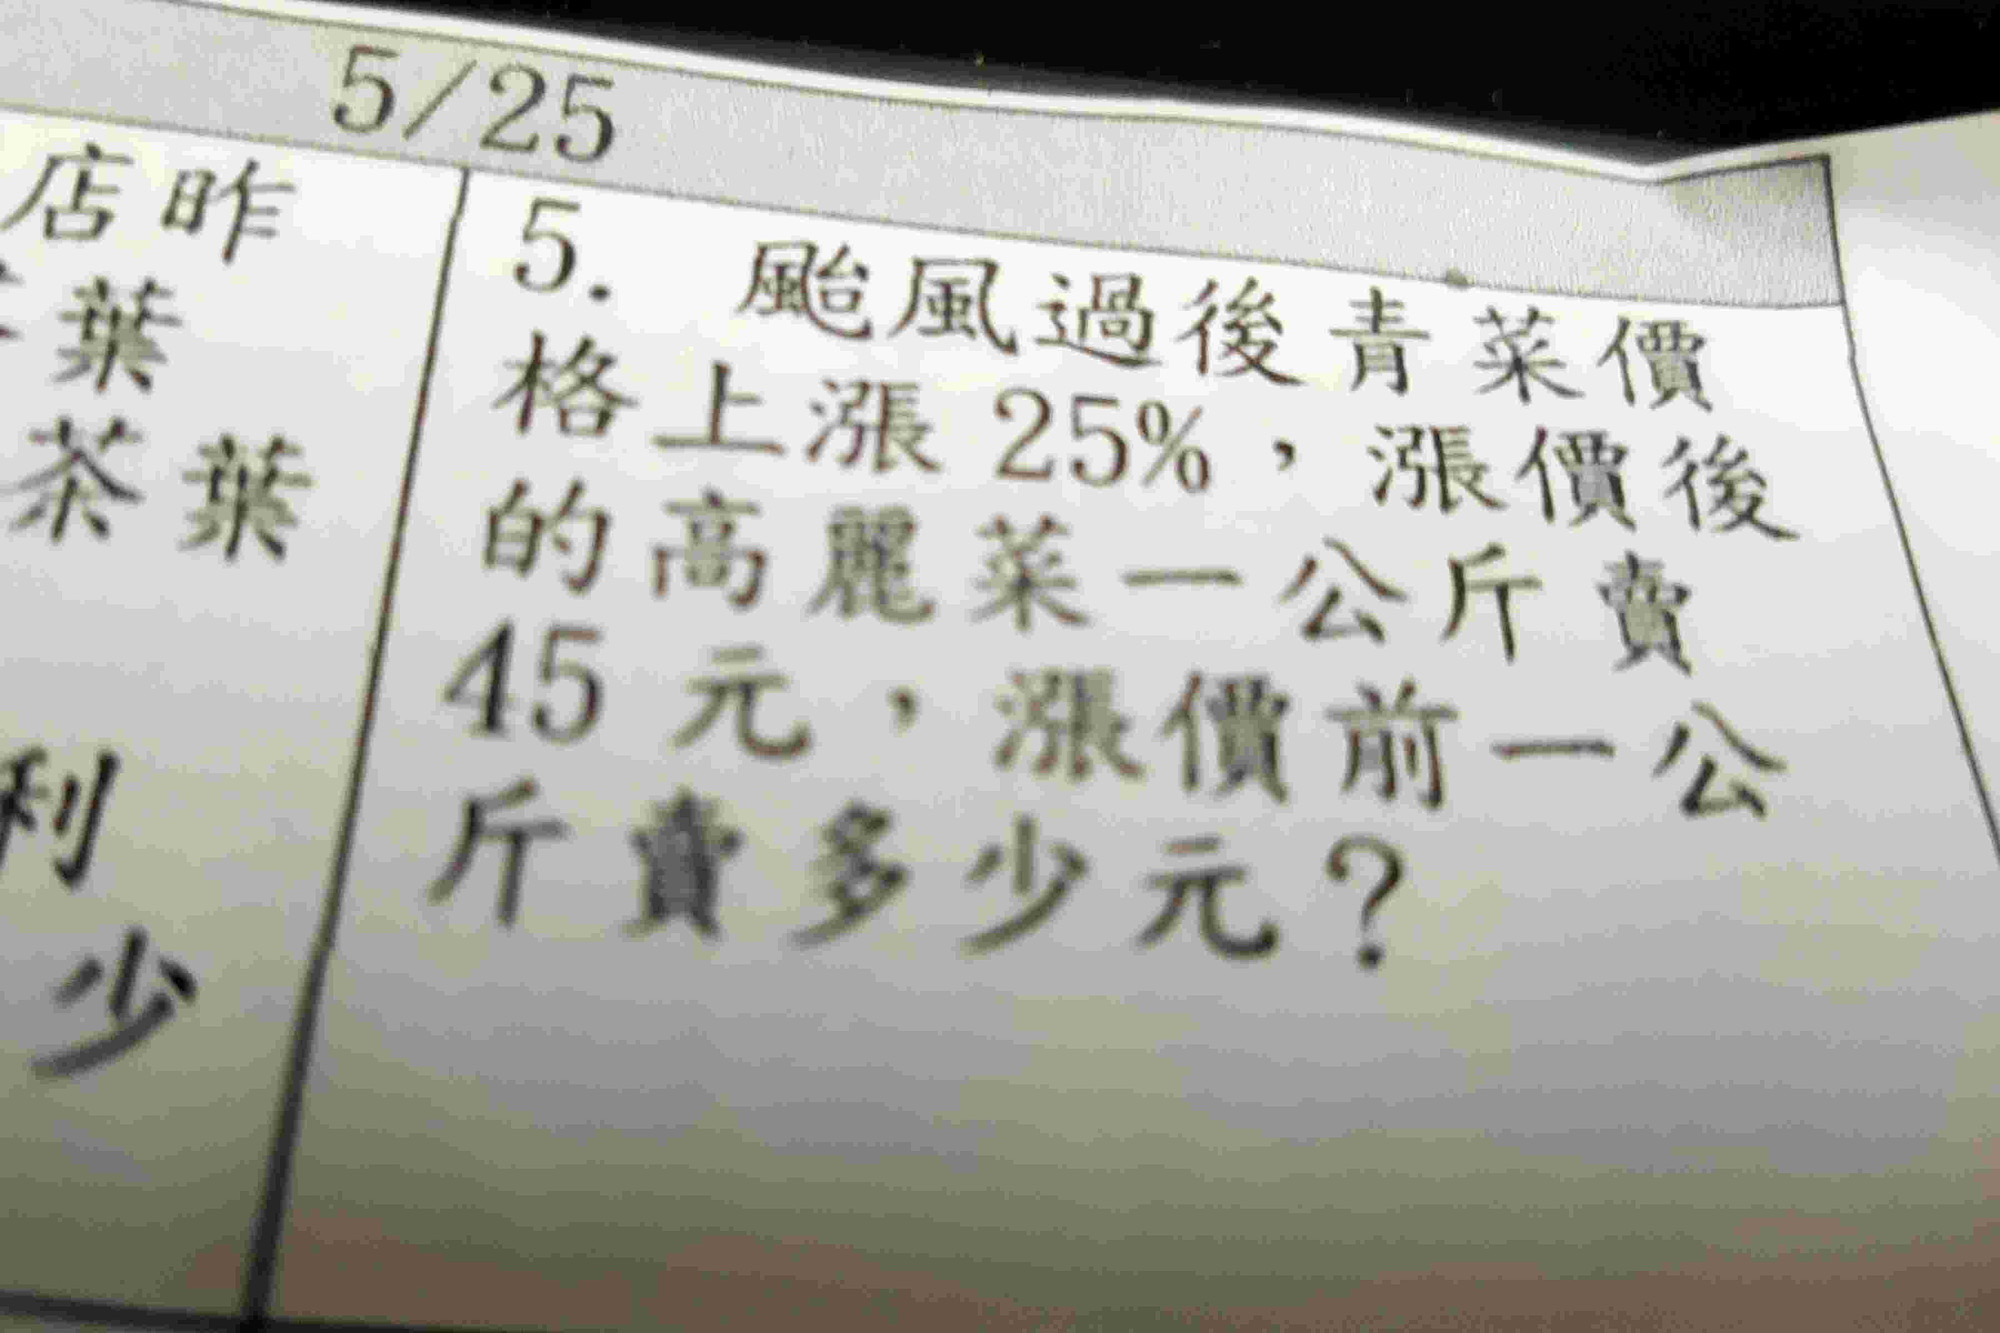 5/25
店昨
葉
茶葉
利
少
5. 颱風過後青菜價
格上漲 25%，漲價後
的高麗菜一公斤賣
45 元，漲價前一公
斤賣多少元？